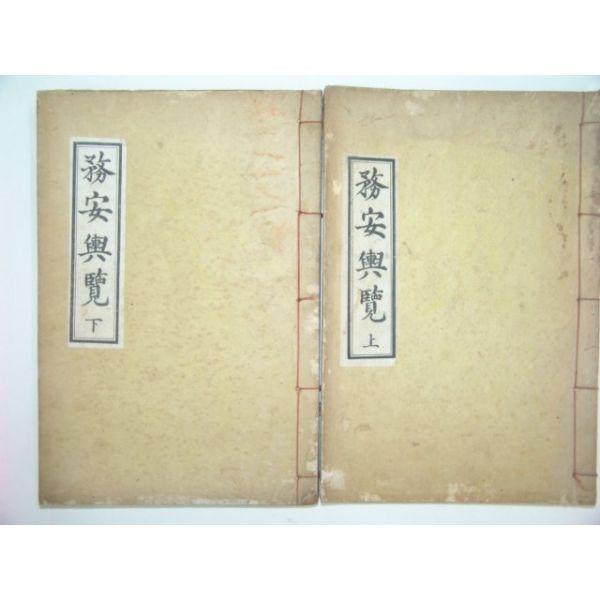 務安輿覽上
務安輿覽下